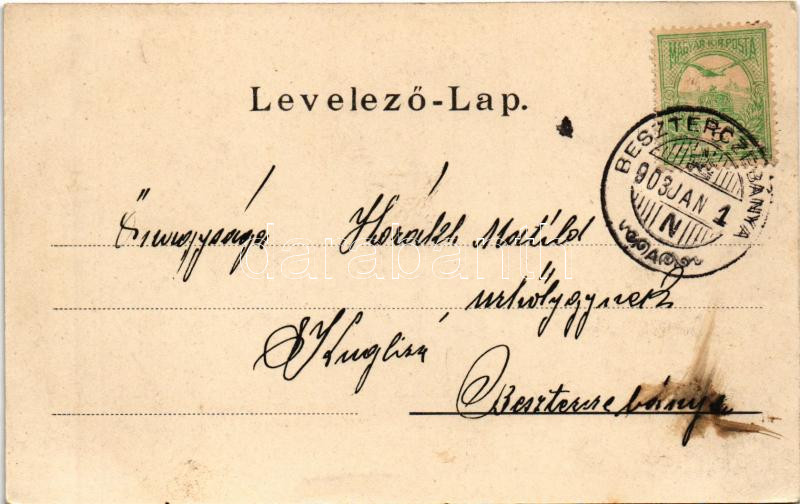 MAGYAR KIR. POSTA
Levelező-Lap.
BESZTERCZEBÁNYA
903 JAN 1
N
A
Őnagysága Horákh Matild
úrhölgynek
Beszterczebánya
darabanth